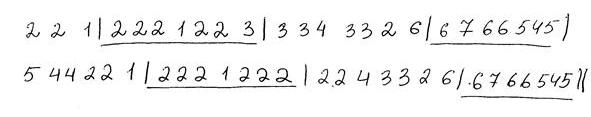 2 2 1 | 2 2 2 1 2 2 3 | 3 3 4 3 3 2 6 | 6 7 6 6 5 4 5 |
5 4 4 2 2 1 | 2 2 2 1 2 2 2 | 2 2 4 3 3 2 6 | 6 7 6 6 5 4 5 ||